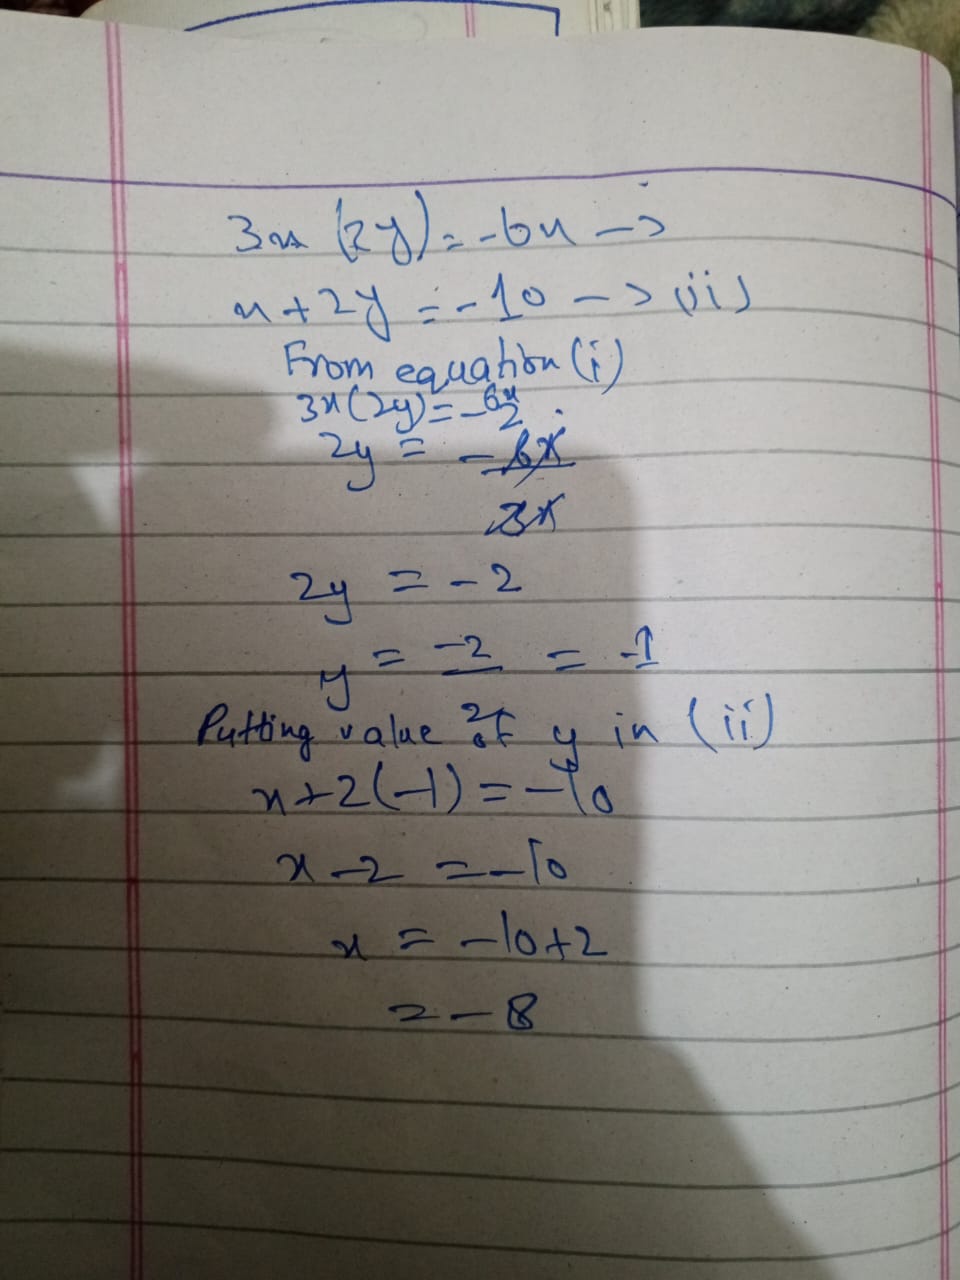 3x (2y) = -6x ->
x + 2y = -10 -> (ii)
From equation (i)
3x(2y) = -6x
2y = -6x/3x
2
2y = -2
y = -2/2 = -1
Putting value of y in (ii)
x + 2(-1) = -10
x - 2 = -10
x = -10 + 2
= -8